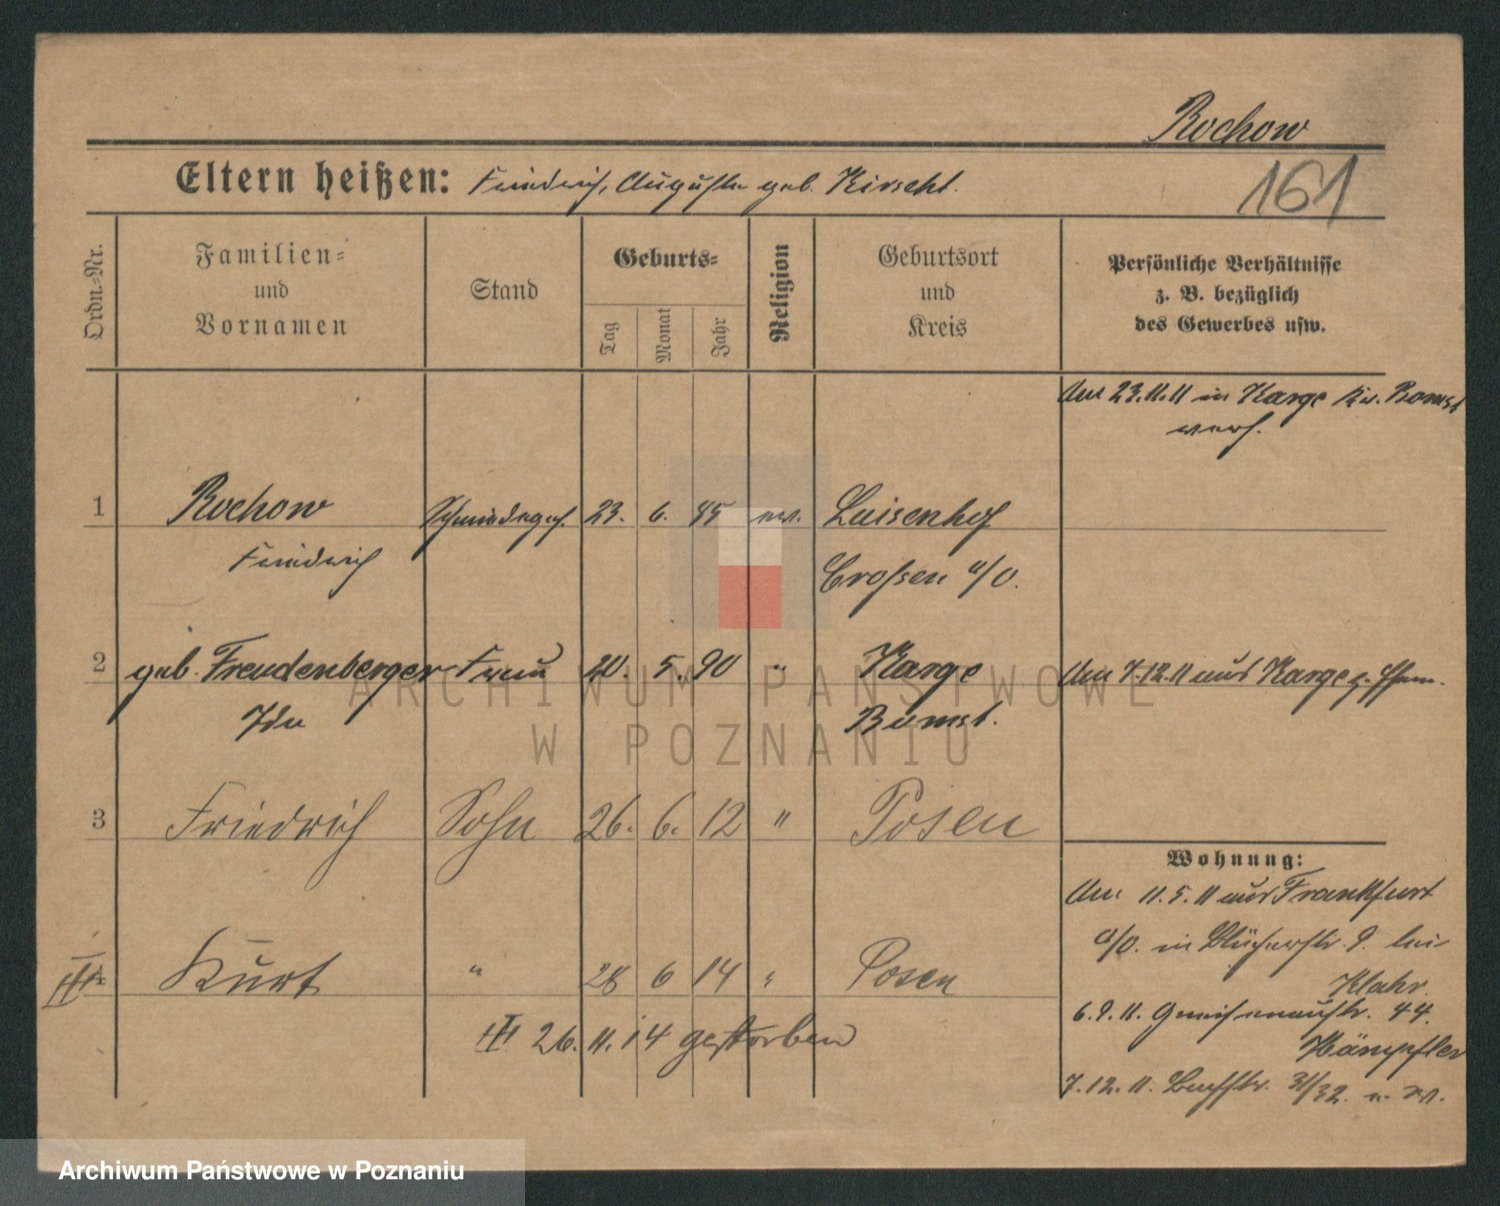 Rochow
161
Eltern heißen: Friedrich, Auguste geb. Kirscht.
Ordn.-Nr.
Familien= und Vornamen
Stand
Geburts=
Tag
Monat
Jahr
Religion
Geburtsort und Kreis
Persönliche Verhältnisse
z. B. bezüglich
des Gewerbes usw.
Am 23.11.11 in Karge Kr. Bomst
verh.
1 Rochow Schmiedeges. 23. 6. 85 ev. Luisenhof
Friedrich Crossen a/O.
2 geb. Freudenberger Frau 20. 5. 90 " Karge Am 7.12.11 aus Karge z.
Ida Bomst.
3 Friedrich Sohn 26. 6. 12 " Posen
Kurt " 28 6 14 " Posen
26. 11. 14 gestorben
Wohnung:
Am 11.5.11 aus Frankfurt
a/O. in Blücherstr. 9. bei
Klahr.
6.9.11. Gneisenaustr. 44.
Kämpfler
7.12.11. 31/32.
ARCHIWUM PAŃSTWOWE
W POZNANIU
Archiwum Państwowe w Poznaniu